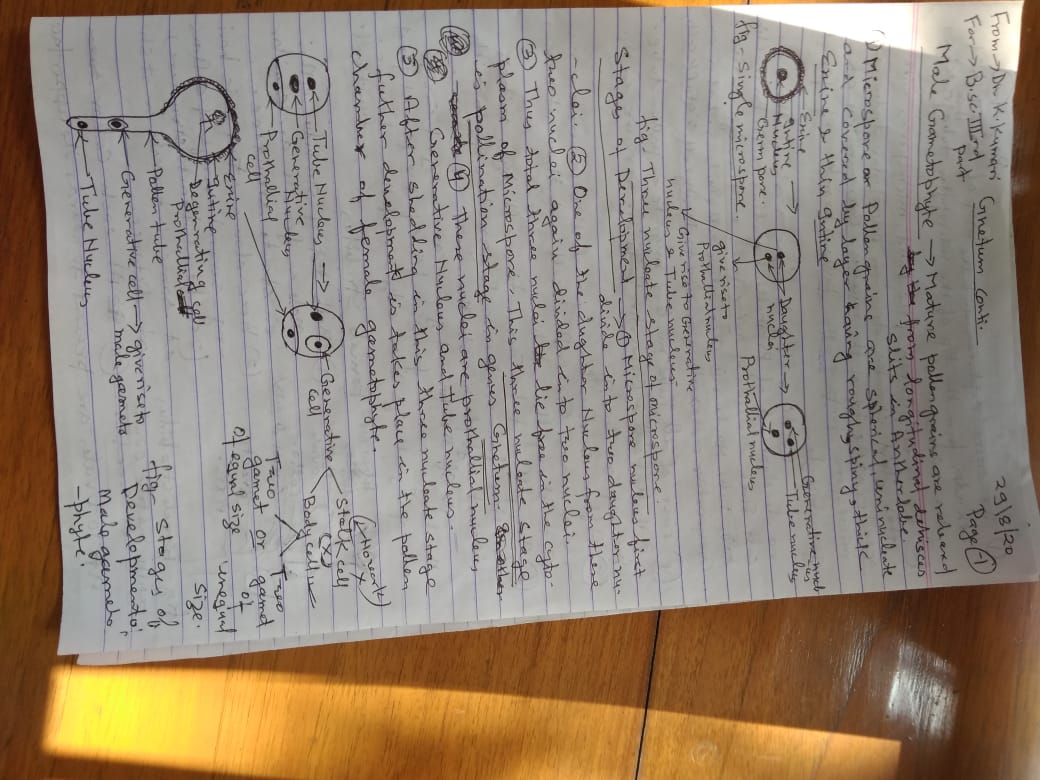 From → Dr. K. Kumari
29/8/20
For → B.Sc. IIIrd part
Gnetum Conti-
Page ①
Male Gametophyte → Mature pollengrains are released
from longitudinal dehisces
slits in Antherlobe.
① Microspore or Pollengrains are spherical, uninucleate
and covered by layer having rough, spiny, thick
Exine & thin intine
Exine
intine
Nucleus
Germ pore.
Daughter
nuclei
Generative-nucl
Tube nucleus
fig- Single microspore.
Prothallial nucleus
give rise to
Prothallial nucleus
Give rise to Generative
nucleus & Tube nucleus
fig- Three nucleate stage of microspore
Stages of Development → ① Microspore nucleus first
divide into two daughter nu-
-clei. ② One of the daughter Nucleus from these
two nuclei again divided into two nuclei.
③ Thus total three nuclei lie free in the cyto-
plasm of Microspore. This three nucleate stage
is pollination stage in genus Gnetum.
④ These nuclei are prothallial nucleus
Generative Nucleus and tube nucleus.
⑤ After shedding in this three nucleate stage
further development is takes place in the pollen
chamber of female gametophyte.
Tube Nucleus
Generative
Nucleus
Prothallial
cell
Generative
cell
Stalk cell
(X)
Body cell
Two
gamet or
of equal size
Two
gamet
of
unequal
size.
Exine
Intine
Degenerating
Prothallial cell
Pollen tube
Generative cell → give rise to
male gamets
Tube Nucleus
fig- Stages of
Development of
Male gameto
-phyte.